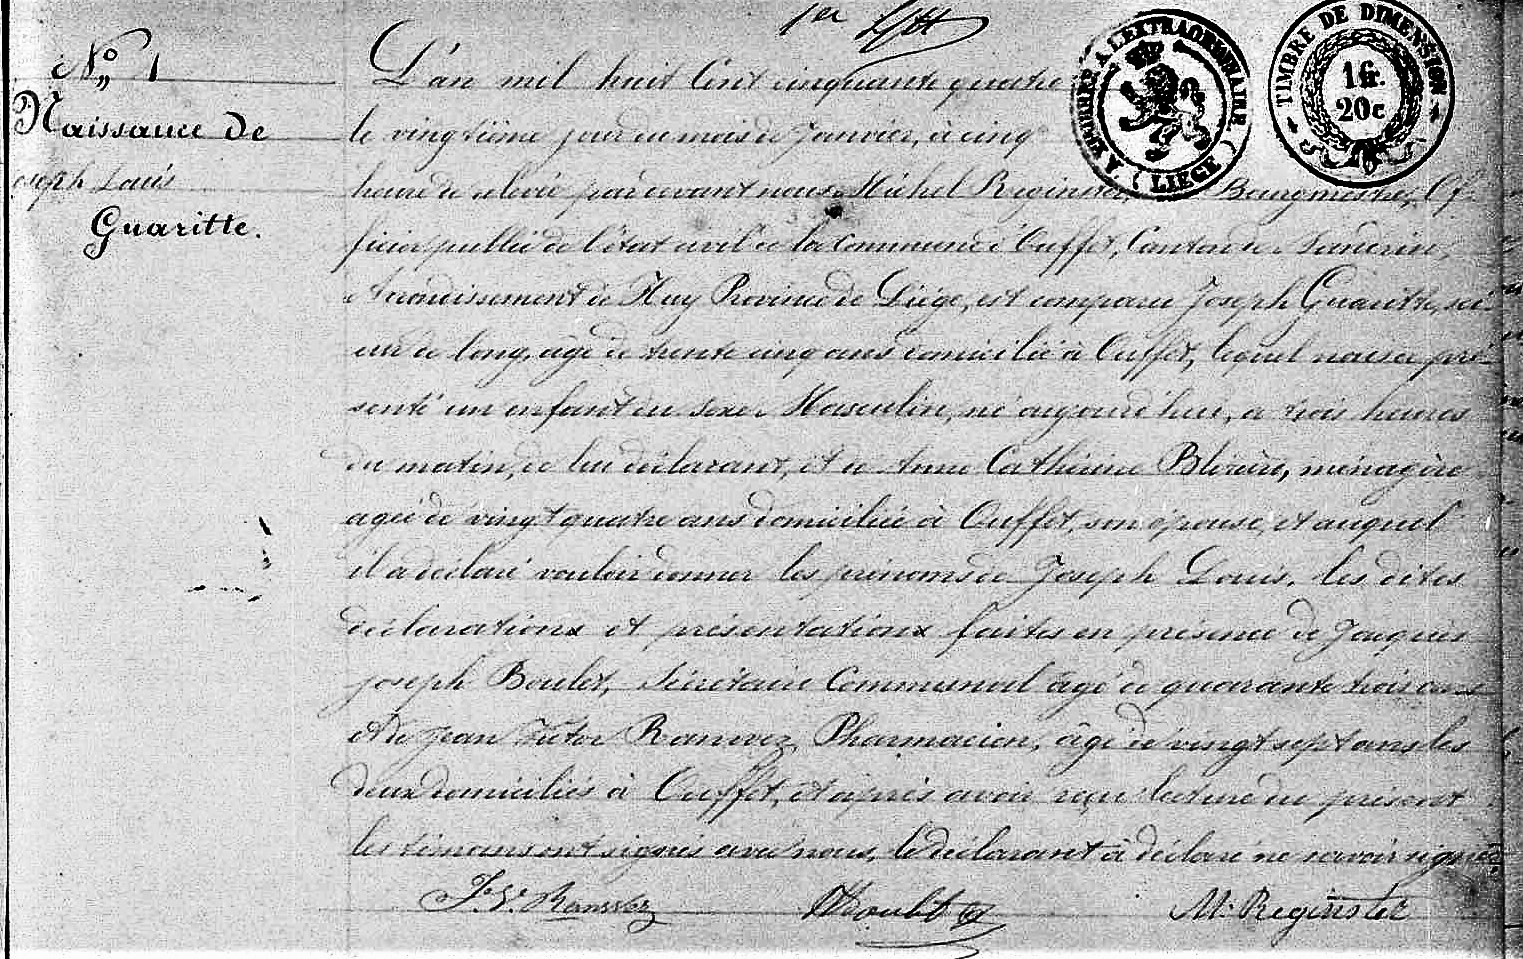 1er
No 1
Naissance de
Joseph Louis
Guaritte.
L'an mil huit Cent cinquante quatre
le vingtième jour du mois de Janvier, à cinq
heures de relevée pardevant nous Michel Reginster, Bourgmestre, Of-
ficier public de l'état civil de la Commune d'Ouffet, Canton de Nandrin,
Arrondissement de Huy Province de Liége, est comparu Joseph Guaritte, sci-
eur de long, âgé de trente cinq ans domicilié à Ouffet, lequel nous a pré-
senté un enfant du sexe Masculin, né aujourd'hui, à trois heures
du matin, de lui déclarant, et de Anne Cathérine, ménagère
agée de vingt quatre ans domiciliée à Ouffet, son épouse, et auquel
il a déclaré vouloir donner les prénoms de Joseph Louis. les dites
déclarations et présentations faites en présence de Jacques
joseph Boulet, Sécrétaire Communal âgé de quarante trois ans
et de jean Victor Ranwez, Pharmacien, âgé de vingt sept ans les
deux domiciliés à Ouffet, et après avoir reçu lecture du présent
les témoins ont signés avec nous, le déclarant à déclaré ne savoir signer.
J. V. Ranwez
Boulet
M. Reginster
A TIMBRER A L'EXTRAORDINAIRE
( LIÉGE )
TIMBRE DE DIMENSION
1fr.
20c